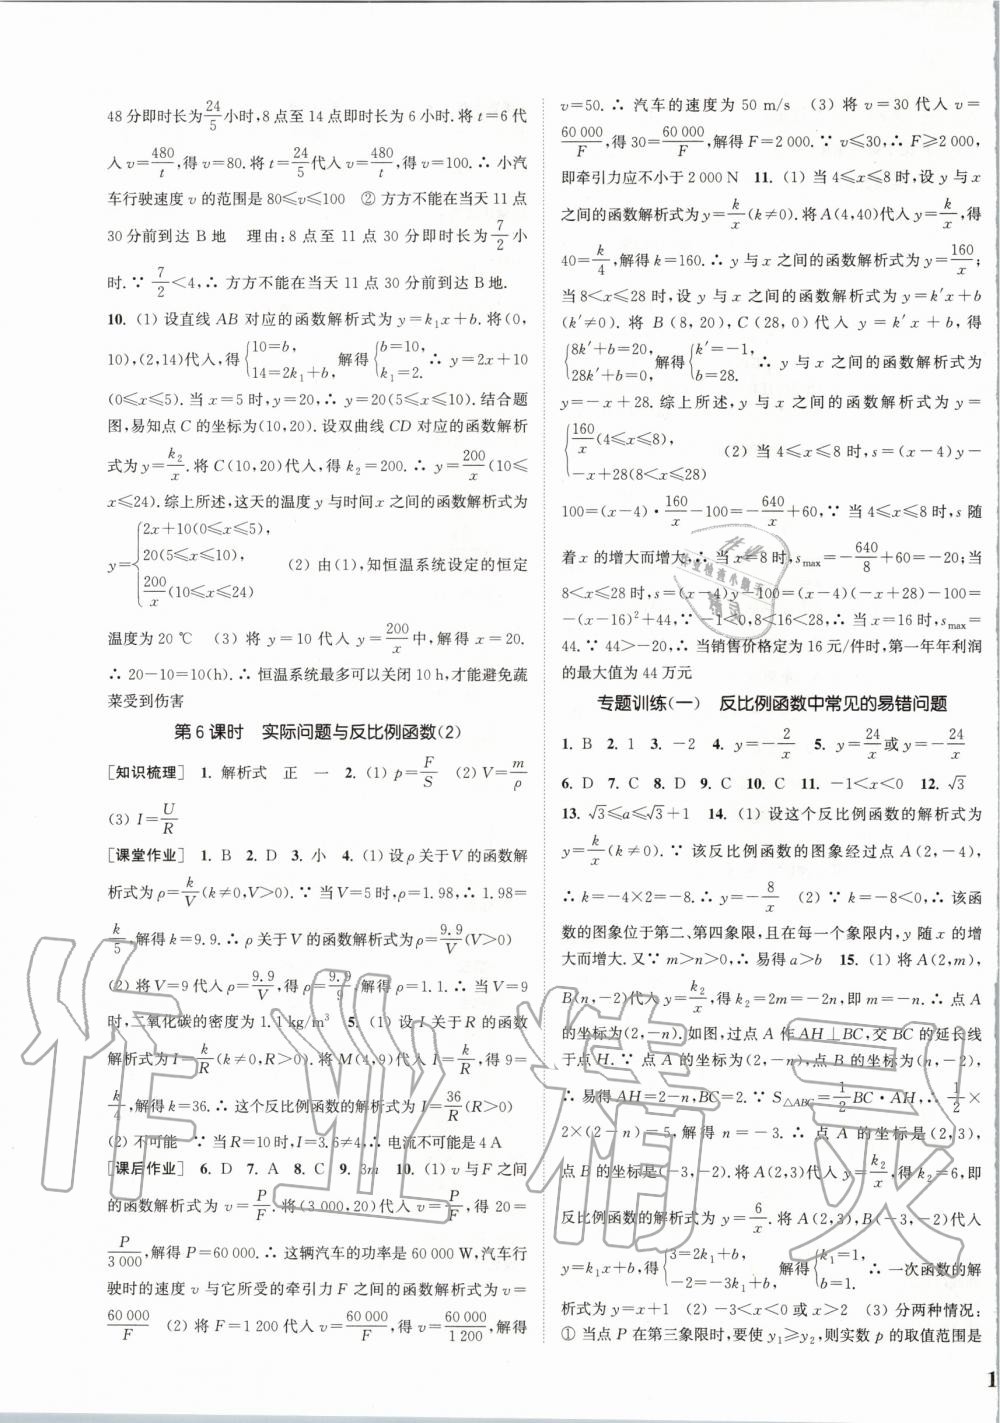 48分即时长为24/5小时,8点至14点即时长为6小时.将t=6代
入v=480/t,得v=80.将t=24/5代入v=480/t,得v=100.∴小汽
车行驶速度v的范围是80≤v≤100 ②方方不能在当天11点
30分前到达B地 理由:8点至11点30分即时长为7/2小
时.∵7/2<4,∴方方不能在当天11点30分前到达B地.
10. (1)设直线AB对应的函数解析式为y=k₁x+b.将(0,
10),(2,14)代入,得{10=b, 14=2k₁+b, 解得{b=10, k₁=2. ∴y=2x+10
(0≤x≤5).当x=5时,y=20,∴y=20(5≤x≤10).结合题
图,易知点C的坐标为(10,20).设双曲线CD对应的函数解析
式为y=k₂/x.将C(10,20)代入,得k₂=200.∴y=200/x(10≤
x≤24).综上所述,这天的温度y与时间x之间的函数解析式为
y={2x+10(0≤x≤5), 20(5≤x≤10), 200/x(10≤x≤24) (2)由(1),知恒温系统设定的恒定
温度为20 ℃ (3)将y=10代入y=200/x中,解得x=20.
∴20-10=10(h).∴恒温系统最多可以关闭10 h,才能避免蔬
菜受到伤害
第6课时 实际问题与反比例函数(2)
[知识梳理] 1. 解析式 正 一 2. (1) p=F/S (2) V=m/ρ
(3) I=U/R
[课堂作业] 1. B 2. D 3. 小 4. (1)设ρ关于V的函数解
析式为ρ=k/V(k≠0,V>0).∵当V=5时,ρ=1.98,∴1.98=
k/5,解得k=9.9.∴ρ关于V的函数解析式为ρ=9.9/V(V>0)
(2)将V=9代入ρ=9.9/V,得ρ=9.9/9,解得ρ=1.1.∴当V=9
时,二氧化碳的密度为1.1 kg/m³ 5. (1)设I关于R的函数
解析式为I=k/R(k≠0,R>0).将M(4,9)代入I=k/R,得9=
k/4,解得k=36.∴这个反比例函数的解析式为I=36/R(R>0)
(2)不可能 ∵当R=10时,I=3.6≠4,∴电流不可能是4 A
[课后作业] 6. D 7. A 8. C 9. 3m 10. (1)v与F之间
的函数解析式为v=P/F.将(3 000,20)代入v=P/F,得20=
P/3 000,解得P=60 000.∴这辆汽车的功率是60 000 W,汽车行
驶时的速度v与它所受的牵引力F之间的函数解析式为v=
60 000/F (2)将F=1 200代入v=60 000/F,得v=60 000/1 200,解得
v=50.∴汽车的速度为50 m/s (3)将v=30代入v=
60 000/F,得30=60 000/F,解得F=2 000.∵v≤30,∴F≥2 000,
即牵引力应不小于2 000 N 11. (1)当4≤x≤8时,设y与x
之间的函数解析式为y=k/x(k≠0).将A(4,40)代入y=k/x,得
40=k/4,解得k=160.∴y与x之间的函数解析式为y=160/x;
当8<x≤28时,设y与x之间的函数解析式为y=k′x+b
(k′≠0).将B(8,20),C(28,0)代入y=k′x+b,得
{8k′+b=20, 28k′+b=0, 解得{k′=-1, b=28. ∴y与x之间的函数解析式为
y=-x+28.综上所述,y与x之间的函数解析式为y=
{160/x(4≤x≤8), -x+28(8<x≤28) (2)当4≤x≤8时,s=(x-4)y-
100=(x-4)·160/x-100=-640/x+60,∵当4≤x≤8时,s随
着x的增大而增大,∴当x=8时,s_max=-640/8+60=-20;当
8<x≤28时,s=(x-4)y-100=(x-4)(-x+28)-100=
-(x-16)²+44,∵-1<0,8<16<28,∴当x=16时,s_max=
44.∵44>-20,∴当销售价格定为16元/件时,第一年年利润
的最大值为44万元
专题训练(一) 反比例函数中常见的易错问题
1. B 2. 1 3. -2 4. y=-2/x 5. y=24/x或y=-24/x
6. D 7. C 8. D 9. C 10. C 11. -1<x<0 12. √3
13. √3≤a≤√3+1 14. (1)设这个反比例函数的解析式为
y=k/x(k≠0).∵该反比例函数的图象经过点A(2,-4),
∴k=-4×2=-8.∴y=-8/x (2)∵k=-8<0,∴该函
数的图象位于第二、第四象限,且在每一个象限内,y随x的增
大而增大.又∵m>n>0,∴易得a>b 15. (1)将A(2,m),
B(n,-2)代入y=k₂/x,得k₂=2m=-2n,即m=-n.∴点A
的坐标为(2,-n).如图,过点A作AH⊥BC,交BC的延长线
于点H.∵点A的坐标为(2,-n),点B的坐标为(n,-2),
∴易得AH=2-n,BC=2.∵S△ABC=1/2BC·AH,∴1/2×
2×(2-n)=5,解得n=-3.∴点A的坐标是(2,3),
点B的坐标是(-3,-2).将A(2,3)代入y=k₂/x,得k₂=6,即
反比例函数的解析式为y=6/x.将A(2,3),B(-3,-2)代入
y=k₁x+b,得{3=2k₁+b, -2=-3k₁+b, 解得{k₁=1, b=1. ∴一次函数的解
析式为y=x+1 (2) -3<x<0或x>2 (3)分两种情况:
①当点P在第三象限时,要使y₁≥y₂,则实数p的取值范围是
1
作业精灵